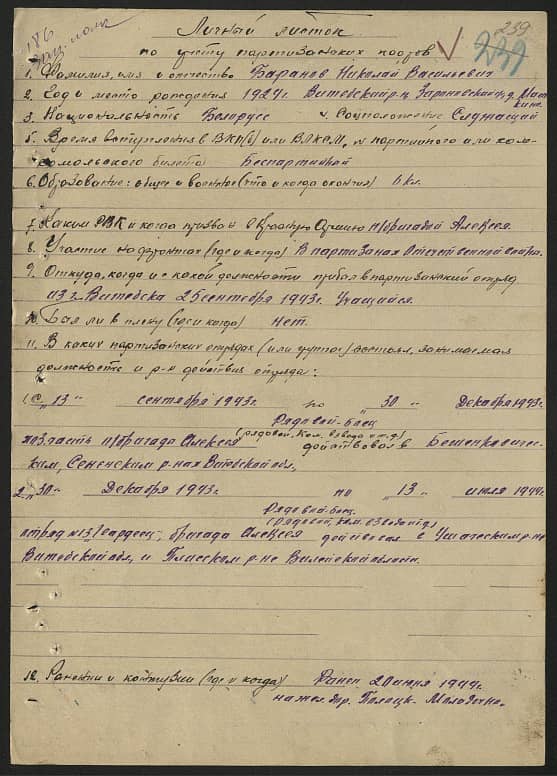 186
239
Личный листок
по учету партизанских кадров
1. Фамилия, имя и отчество Баранов Николай Васильевич
2. Год и место рождения 1927г. Витебский р-н, Зароновский с/с, д.
3. Национальность Белорус 4. Соцположение Служащий
5. Время вступления в ВКП(б) или ВЛКСМ, № партийного или ком-
сомольского билета: Беспартийный
6. Образование: общее и военное (что и когда окончил) 6 кл.
7. Каким РВК и когда призван в Красную Армию п/бригадой Алексея.
8. Участие на фронтах (где и когда) В партизанах Отечественной войны.
9. Откуда, когда и с какой должности прибыл в партизанский отряд
из г. Витебска 25 сентября 1943г. Учащийся.
10. Был ли в плену (где и когда) нет.
11. В каких партизанских отрядах (или группах) состоял, занимаемая
должность и р-н действия отряда:
1. С "13" сентября 1943г. по "30" Декабря 1943г.
Рядовой-боец
хоз.часть п/бригада Алексея (рядовой, ком. взвода и т.д.) действовал в Бешенкович-
ским, Сенненским р-нах Витебской обл.
2. "30" Декабря 1943г. по "13" июля 1944г.
Рядовой-боец.
(рядовой, ком. взвода и т.д.)
отряд №13 Гвардеец, бригада Алексея действовал в Ушачском р-не
Витебской обл, и Плисском р-не Вилейской области.
12. Ранения и контузии (где и когда) Ранен 20 июня 1944г.
на жел. дор. Полоцк-Молодечно.